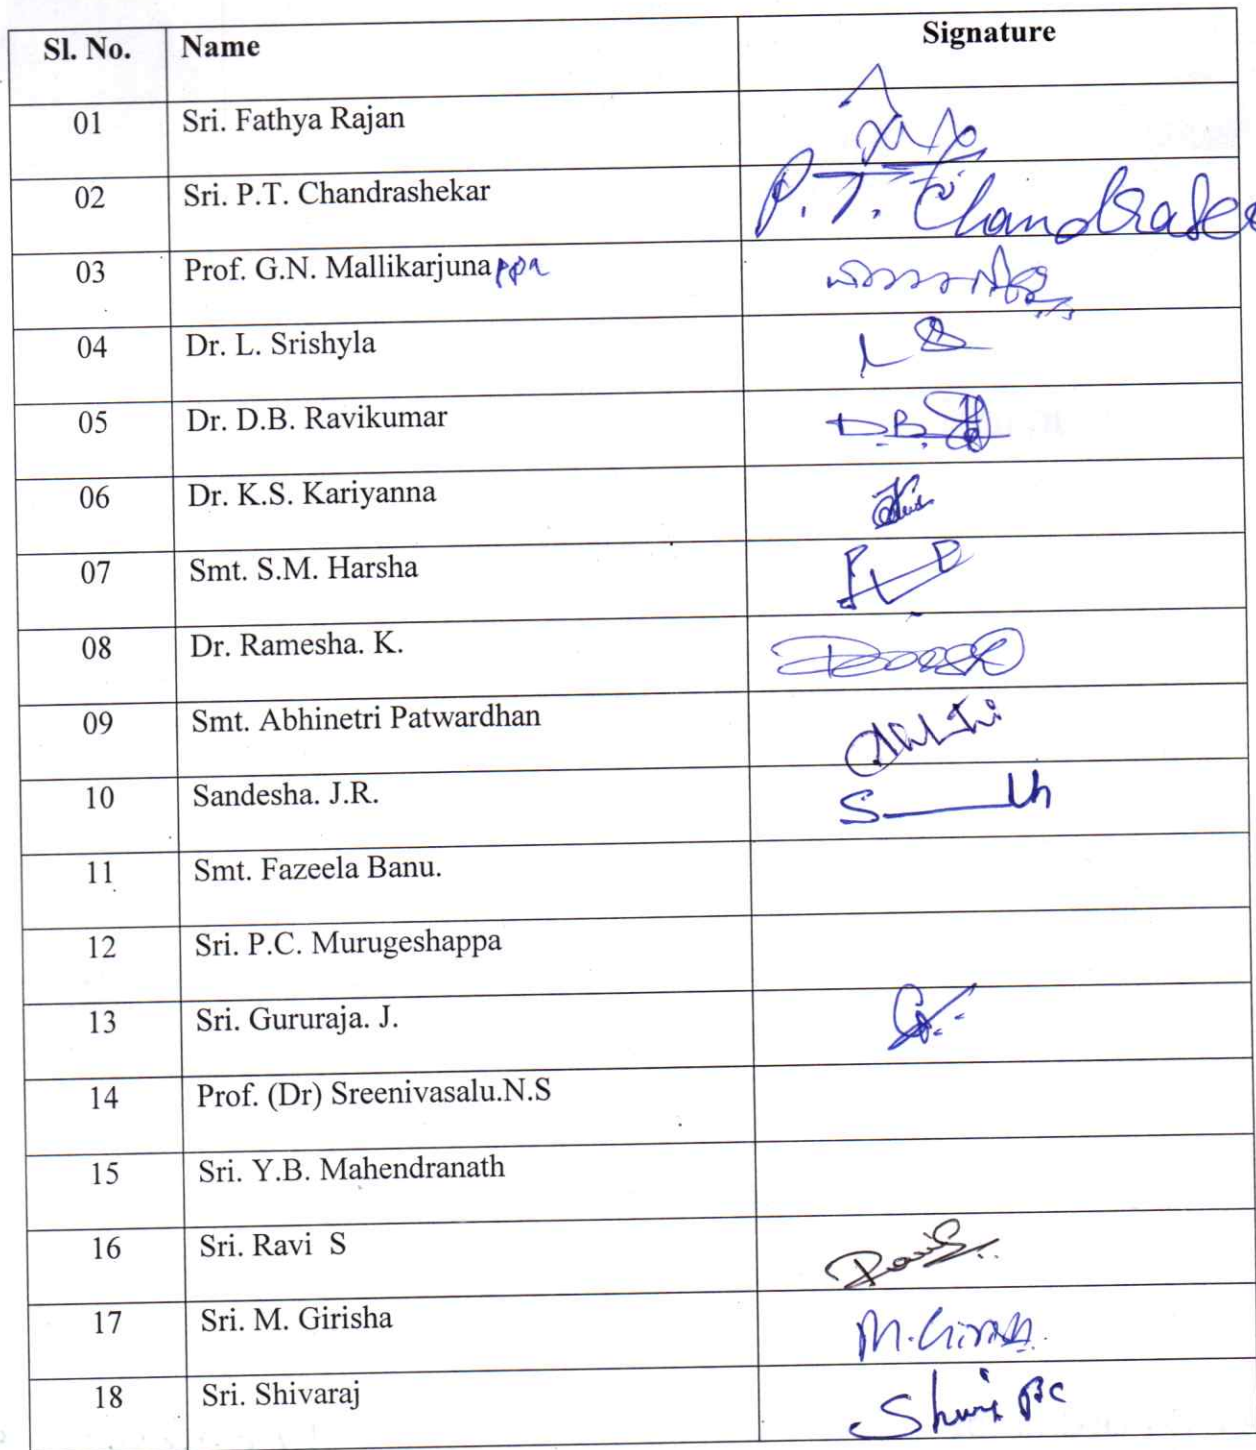 Sl. No. Name Signature
01 Sri. Fathya Rajan
02 Sri. P.T. Chandrashekar P.T. Chandrasek
03 Prof. G.N. Mallikarjunappa
04 Dr. L. Srishyla
05 Dr. D.B. Ravikumar D.B.
06 Dr. K.S. Kariyanna
07 Smt. S.M. Harsha
08 Dr. Ramesha. K.
09 Smt. Abhinetri Patwardhan
10 Sandesha. J.R.
11 Smt. Fazeela Banu.
12 Sri. P.C. Murugeshappa
13 Sri. Gururaja. J.
14 Prof. (Dr) Sreenivasalu.N.S
15 Sri. Y.B. Mahendranath
16 Sri. Ravi S
17 Sri. M. Girisha
18 Sri. Shivaraj